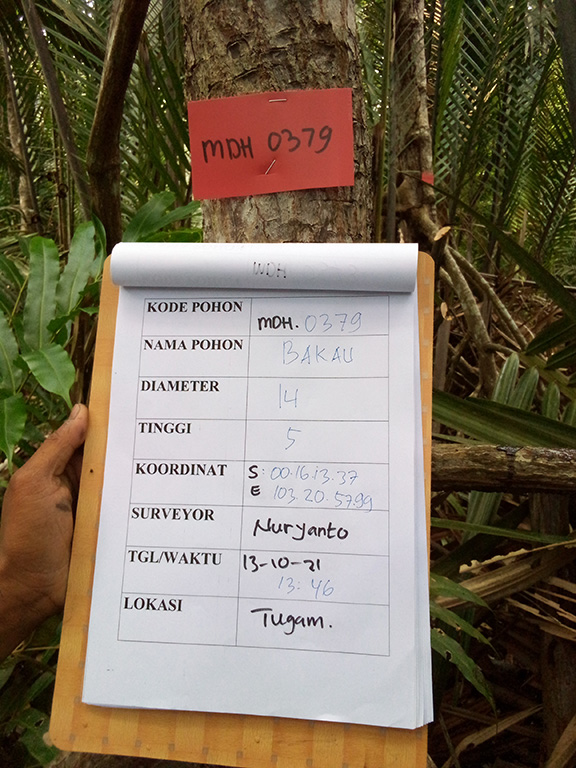 MDH 0379
KODE POHON MDH. 0379
NAMA POHON BAKAU
DIAMETER 14
TINGGI 5
KOORDINAT S: 00.16.13.37
E 103.20.57.99
SURVEYOR Nuryanto
TGL/WAKTU 13-10-21
13:46
LOKASI Tugam.